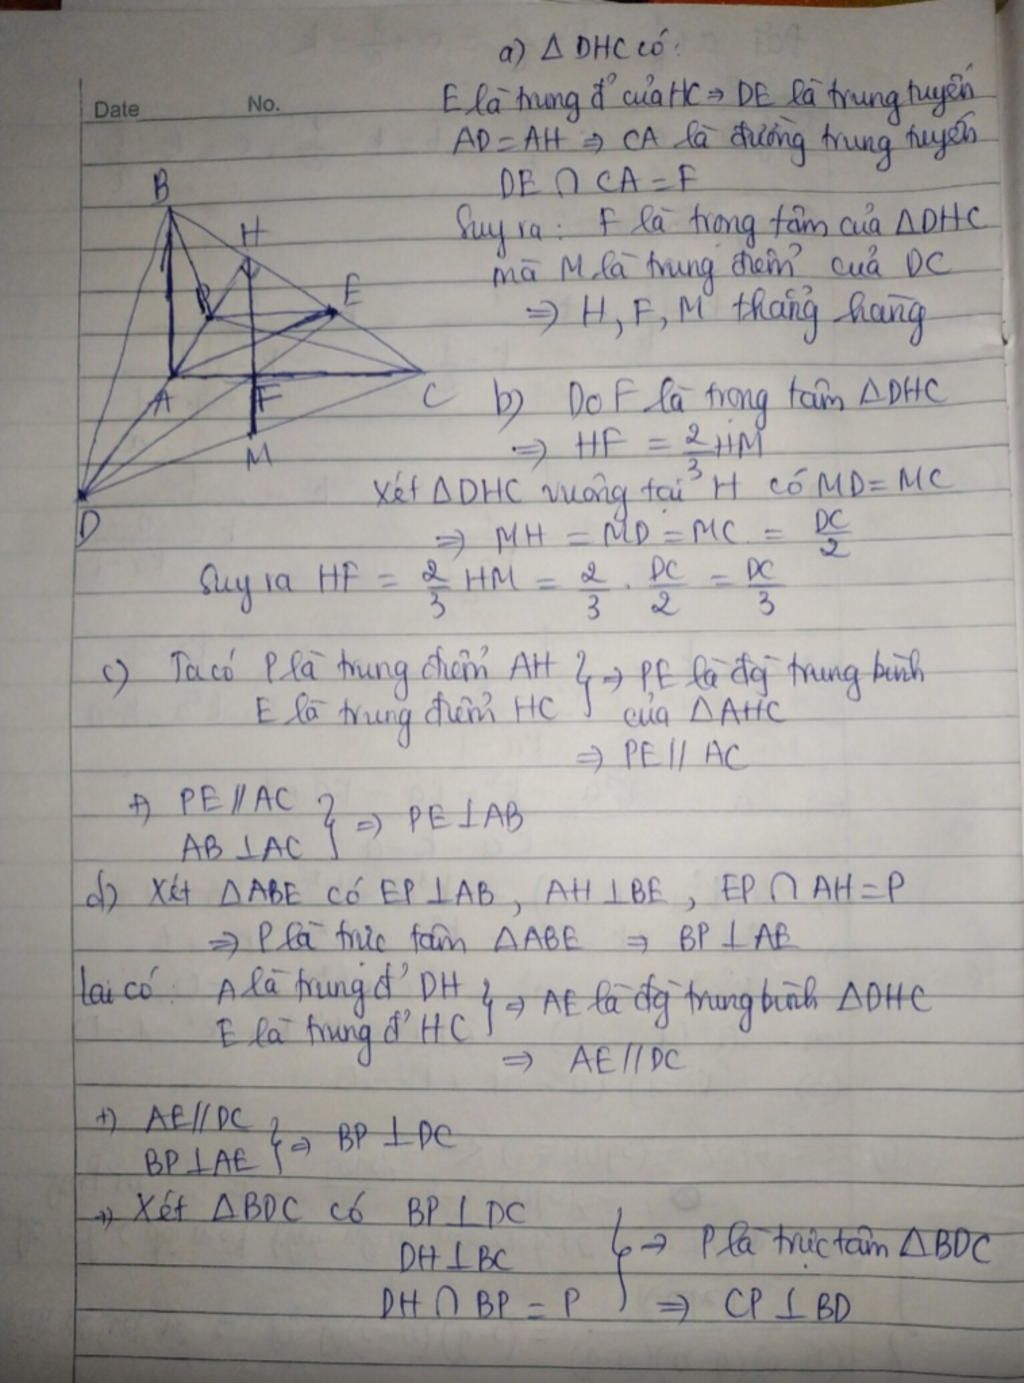 a) Δ DHC có:
Date No.
E là trung đ' của HC ⇒ DE là trung tuyến
AD = AH ⇒ CA là đường trung tuyến
DE ∩ CA = F
Suy ra: F là trọng tâm của ΔDHC
mà M là trung điểm của DC
⇒ H, F, M thẳng hàng
B
H
P
E
A
F
C
M
D
b) Do F là trọng tâm ΔDHC
⇒ HF = 2/3 HM
Xét ΔDHC vuông tại H có MD = MC
⇒ MH = MD = MC = DC/2
Suy ra HF = 2/3 HM = 2/3 . DC/2 = DC/3
c) Ta có P là trung điểm AH } ⇒ PE là đg trung bình
E là trung điểm HC của ΔAHC
⇒ PE // AC
+) PE // AC } ⇒ PE ⊥ AB
AB ⊥ AC
d) Xét ΔABE có EP ⊥ AB, AH ⊥ BE, EP ∩ AH = P
⇒ P là trực tâm ΔABE ⇒ BP ⊥ AE
lại có: A là trung đ' DH } ⇒ AE là đg trung bình ΔDHC
E là trung đ' HC
⇒ AE // DC
+) AE // DC } ⇒ BP ⊥ DC
BP ⊥ AE
+) Xét ΔBDC có BP ⊥ DC
DH ⊥ BC } ⇒ P là trực tâm ΔBDC
DH ∩ BP = P ⇒ CP ⊥ BD